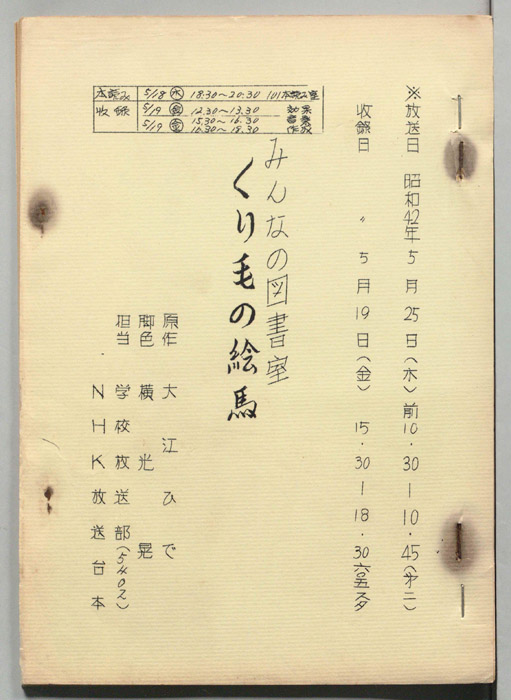 本読み 5/18 ㊍ 18.30〜20.30 101本読み室
収録 5/19 ㊎ 12.30〜13.30 効果
15.30〜16.30 音楽
5/19 ㊎ 16.30〜18.30
※放送日 昭和42年5月25日(木)前10・30―10・45(才二)
収録日 〃 5月19日(金)15・30―18・30 六〇五スタ
みんなの図書室
くり毛の絵馬
原作 大江ひで
脚色 横光晃
担当 学校放送部(5402)
NHK放送台本